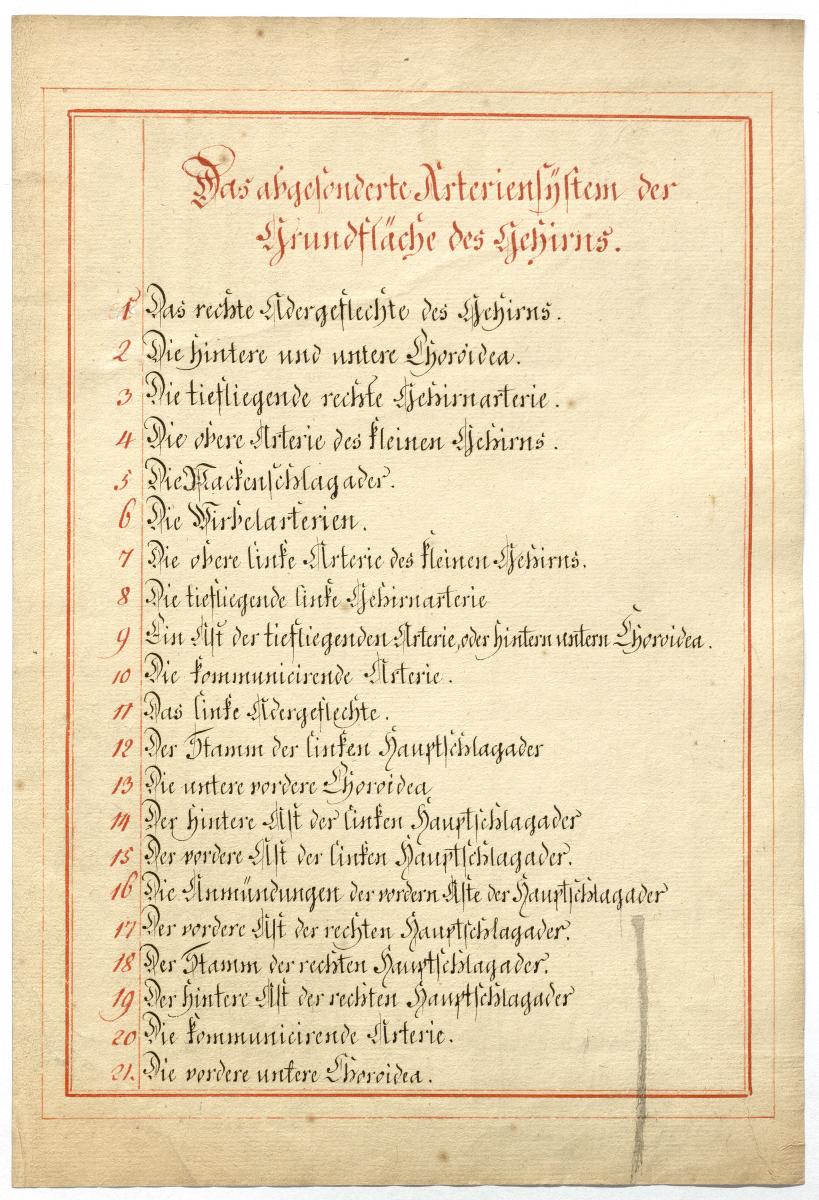 Das abgesonderte Arteriensÿstem der
Grundfläche des Gehirns.
1 Das rechte Adergeflechte des Gehirns.
2 Die hintere und untere Choroidea.
3 Die tiefliegende rechte Gehirnarterie.
4 Die obere Arterie des kleinen Gehirns.
5 Die Nackenschlagader.
6 Die Wirbelarterien.
7 Die obere linke Arterie des kleinen Gehirns.
8 Die tiefliegende linke Gehirnarterie
9 Ein Ast der tiefliegenden Arterie, oder hintern untern Choroidea.
10 Die kommunicirende Arterie.
11 Das linke Adergeflechte.
12 Der Stamm der linken Hauptschlagader
13 Die untere vordere Choroidea
14 Der hintere Ast der linken Hauptschlagader
15 Der vordere Ast der linken Hauptschlagader.
16 Die Anmündungen der vordern Aste der Hauptschlagader
17 Der vordere Ast der rechten Hauptschlagader.
18 Der Stamm der rechten Hauptschlagader.
19 Der hintere Ast der rechten Hauptschlagader
20 Die kommunicirende Arterie.
21. Die vordere untere Choroidea.